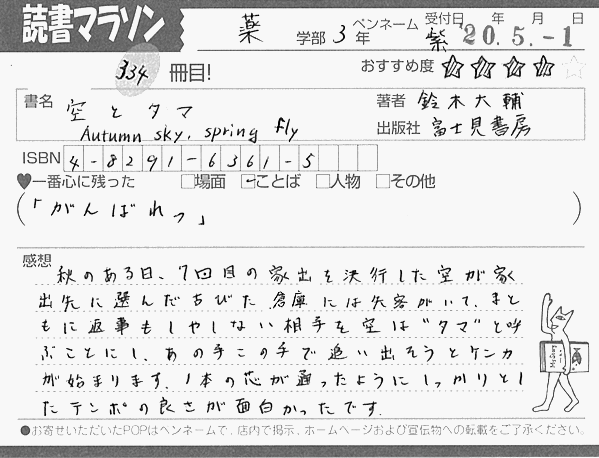 読書マラソン
薬 学部 3年
ペンネーム 紫
受付日 年 月 日
'20. 5. -1
334 冊目!
おすすめ度 ★★★★☆
書名 空とタマ
Autumn sky, spring fly
著者 鈴木大輔
出版社 富士見書房
ISBN 4-8291-6361-5
♥一番心に残った □場面 ☑ことば □人物 □その他
(「がんばれっ」)
感想
秋のある日、7回目の家出を決行した空が家
出先に選んだちびた倉庫には先客がいて、まと
もに返事もしやしない相手を空は“タマ”と呼
ぶことにし、あの手この手で追い出そうとケンカ
が始まります。1本の芯が通ったようにしっかりとし
たテンポの良さが面白かったです。
●お寄せいただいたPOPはペンネームで、店内で掲示、ホームページおよび宣伝物への転載をご了承ください。